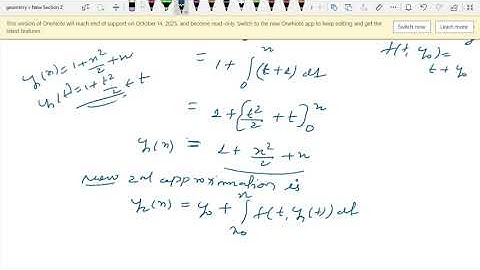 geometry » New Section 2
This version of OneNote will reach end of support on October 14, 2025, and become read-only. Switch to the new OneNote app to keep editing and get the latest features.
Switch now
Learn more
y₁(x) = 1 + x²/2 + x
y₁(t) = 1 + t²/2 + t
= 1 + ∫₀ˣ (t+1) dt
f(t, y₀) =
t + y₀
= 1 + [t²/2 + t]₀ˣ
y₁(x) = 1 + x²/2 + x
Now 2nd approximation is
y₂(x) = y₀ + ∫ₓ₀ˣ f(t, y₁(t)) dt